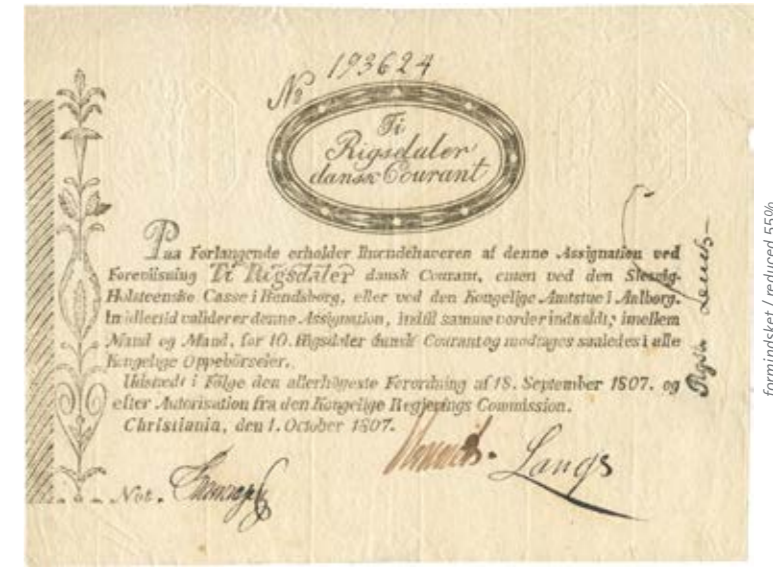 No 193624
Ti
Rigsdaler
dansk Courant
Paa Forlangende erholder Ihændehaveren af denne Assignation ved
Foreviisning Ti Rigsdaler dansk Courant, enten ved den Slesvig-
Holsteenske Casse i Rendsborg, eller ved den Kongelige Amtstue i Aalborg.
Imidlertid validerer denne Assignation, indtil samme vorder indkaldt, imellem
Mand og Mand, for 10. Rigsdaler dansk Courant og modtages saaledes i alle
Kongelige Oppebörseler.
Udstædt i Fölge den allerhögeste Forordning af 18. September 1807. og
efter Autorisation fra den Kongelige Regjerings Commission.
Christiania, den 1. October 1807.
Not.
Langs
formindsket / reduced 55%